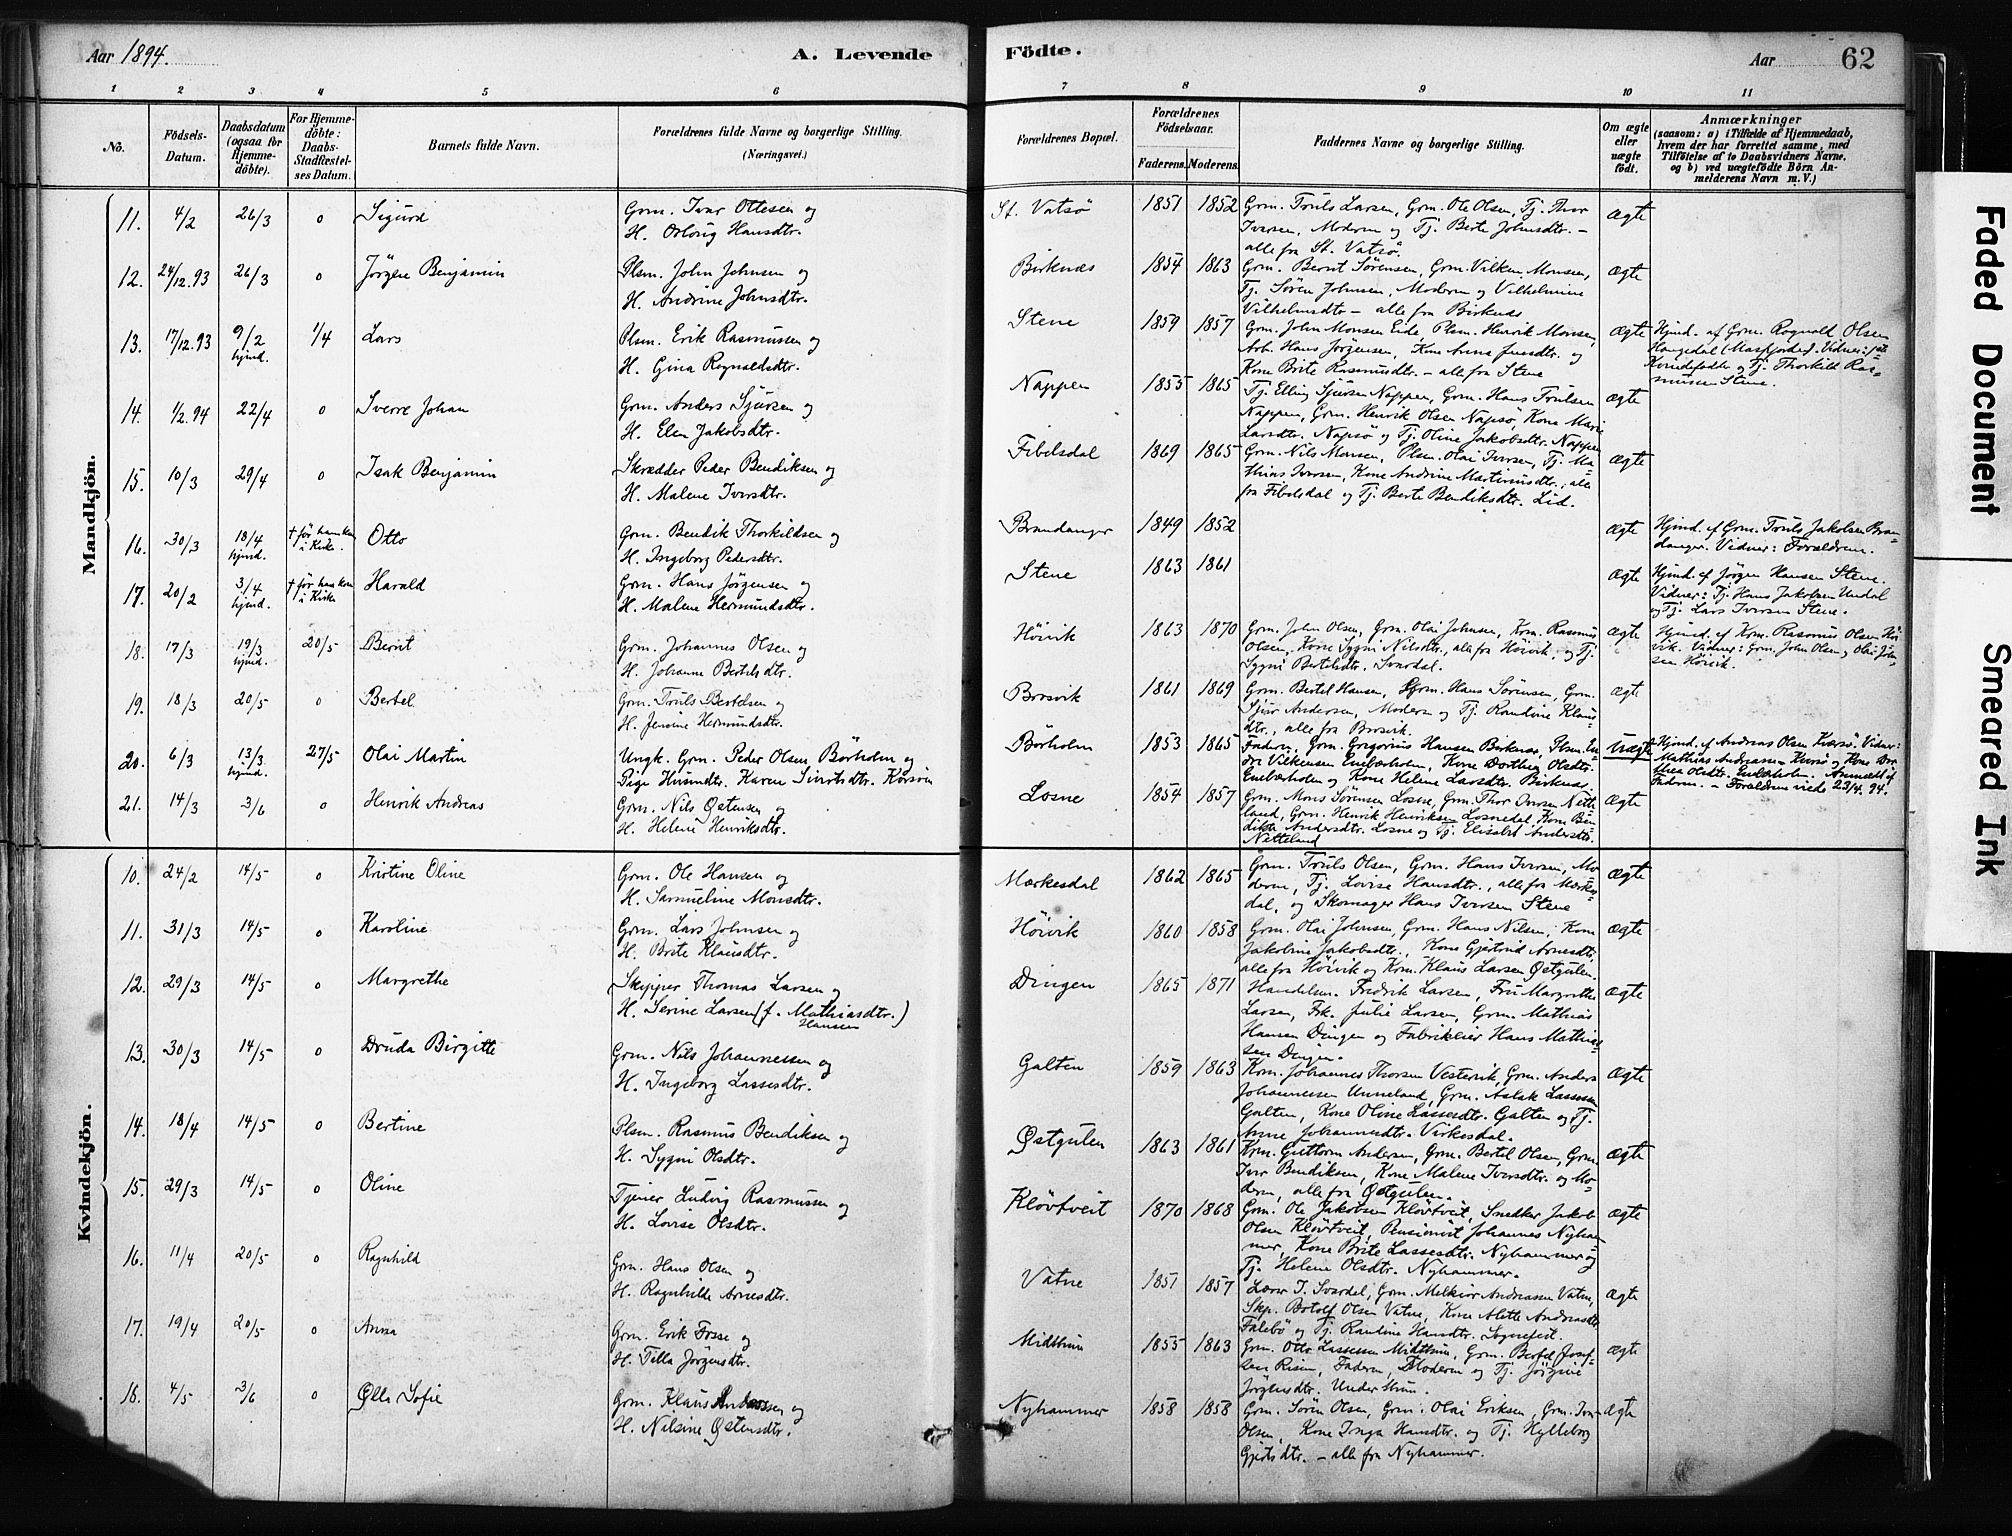 Aar 1894.
A. Levende
Födte.
Aar
62
1 2 3 4 5 6 7 8 9 10 11
No.
Födsels-
Datum.
Daabsdatum
(ogsaa for
Hjemme-
döbte).
For Hjemme-
döbte:
Daabs-
Stadfæstel-
ses Datum.
Barnets fulde Navn.
Forældrenes fulde Navne og borgerlige Stilling.
(Næringsvei.)
Forældrenes Bopæl.
Forældrenes
Födselsaar.
Faderens. Moderens.
Faddernes Navne og borgerlige Stilling.
Om ægte
eller
uægte
födt.
Anmærkninger
(saasom: a) i Tilfælde af Hjemmedaab,
hvem der har forrettet samme, med
Tilföielse af to Daabsvidners Navne,
og b) ved uægtefödte Börn An-
melderens Navn m. V.)
Mandkjön.
11. 4/2 26/3 o Sigurd
Grm. Ivar Ottesen og
H. Orloug Hansdtr.
St. Vatsö 1851 1852
Grm. Truls Larsen, Grm. Ole Olsen, Tj. Thor
Iversen, Moderen og Tj. Berte Johnsdtr. –
alle fra St. Vatsö.
ægte
12. 24/12.93 26/3 o Jörgen Benjamin
Plsm. John Johnsen og
H. Andrine Johnsdtr.
Birknæs 1854 1863
Grm. Bernt Sörensen, Grm. Vilken Monsen,
Tj. Sören Johnsen, Moderen og Vilhelmine
Vilhelmsdtr – alle fra Birknes
ægte
13. 17/12.93 9/2 hjmd. 1/4 Lars
Plsm. Erik Rasmussen og
H. Gina Rognaldsdtr.
Stene 1859 1857
Grm. John Monsen Eide, Plsm. Henrik Monsen,
Arb. Hans Jörgensen, Kone Anna Jensdtr. og
Kone Brite Rasmusdtr. – alle fra Stene
ægte
Hjmd. af Grm. Rognald Olsen
Haugsdal (Masfjorden). Vidner:
og Tj. Thorkild Ras-
mussen Stene.
14. 1/2.94 22/4 o Sverre Johan
Grm. Anders Sjursen og
H. Elen Jakobsdtr.
Nappen 1855 1865
Tj. Elling Sjursen Nappen, Grm. Hans Trulsen
Nappen, Grm. Henrik Olsen Napsö, Kone Marie
Larsdtr. Napsö og Tj. Oline Jakobsdtr. Nappen
ægte
15. 10/3 29/4 o Isak Benjamin
Skrædder Peder Bendiksen og
H. Malene Iversdtr.
Fibelsdal 1869 1865
Grm. Nils Monsen, Plsm. Olai Iversen, Tj. Ma-
thias Iversen, Kone Andrine Martinusdtr., alle
fra Fibelsdal og Tj. Berte Bendiksdtr. Lid.
ægte
16. 30/3 18/4 hjmd. † før han kom i Kirke. Otto
Grm. Bendik Thorkildsen og
H. Ingeborg Pedersdtr.
Brandanger 1849 1852
ægte
Hjmd. af Grm. Truls Jakobsen Bran-
danger. Vidner: Forældrene.
17. 20/2 3/4 hjmd. † før han kom i Kirke Harald
Grm. Hans Jörgensen og
H. Malene Hermundsdtr.
Stene 1863 1861
ægte
Hjmd. af Jörgen Hansen Stene.
Vidner: Tj. Hans Jakobsen Undal
og Tj. Lars Iversen Stene.
18. 17/3 19/3 hjmd. 20/5 Bernt
Grm. Johannes Olsen og
H. Johanne Bertelsdtr.
Höivik 1863 1870
Grm. John Olsen, Grm. Olai Johnsen, Krm. Rasmus
Olsen, Kone Sygni Nilsdtr., alle fra Höivik, og Tj.
Sygni Botolsdtr. Svardal.
ægte
Hjmd. af Krm. Rasmus Olsen Höi-
vik. Vidner: Grm. John Olsen og Olai John-
sen Höivik.
19. 18/3 20/5 o Bertel
Grm. Truls Bertelsen og
H. Jensine Hermundsdtr.
Brosvik 1861 1869
Grm. Bertel Hansen, Grm. Hans Sörensen, Grm.
Sjur Andersen, Moderen og Tj. Randine Klaus-
dtr., alle fra Brosvik.
ægte
20. 6/3 13/3 hjmd. 27/5 Olai Martin
Ungk. Grm. Peder Olsen Börholm og
Pige Husmdtr. Karen Sivertsdtr. Korsöen
Börholm 1853 1865
Faderen, Grm. Gregorius Hansen Birknes, Plsm.
Vilkensen Enebærholm, Kone Dorthea Olsdtr.
Enebærholm og Kone Helene Larsdtr. Birknes.
Uægte
Hjmd. af Andreas Olsen Kversö. Vidner:
Mathias Andreasen Kversö og Kone Dor-
thea Olsdtr. Enebærholm. Anmeldt af
Faderen. – Forældrene viede 23/4. 94.
21. 14/3 3/6 o Henrik Andreas
Grm. Nils Østensen og
H. Helene Henriksdtr.
Losne 1854 1857
Grm. Mons Sörensen Losne, Grm. Thor Onsen Nette-
land, Grm. Henrik Henriksen Losnedal, Kone Ben-
dikte Andersdtr. Losne og Tj. Elisabet Andersdtr.
Netteland
ægte
Kvindekjön.
10. 24/2 14/5 o Kristine Oline
Grm. Ole Hansen og
H. Samueline Monsdtr.
Mærkesdal 1862 1865
Grm. Truls Olsen, Grm. Hans Iversen, Mo-
deren, Tj. Lovise Hansdtr., alle fra Mærkes-
dal, og Skomager Hans Iversen Stene
ægte
11. 31/3 14/5 o Karoline
Grm. Lars Johnsen og
H. Brite Klausdtr.
Höivik 1860 1858
Grm. Olai Johnsen, Grm. Hans Nilsen, Kone
Jakobine Jakobsdtr., Kone Gjertrud Arnesdtr.
alle fra Höivik og Krm. Klaus Larsen Østgulen.
ægte
12. 29/3 14/5 o Margrethe
Skipper Thomas Larsen og
H. Serine Larsen (f. Mathiasdtr.)
Hansen
Dingen 1865 1871
Handelsm. Fredrik Larsen, Fru Margrethe
Larsen, Frk. Julie Larsen, Grm. Mathias
Hansen Dingen og Fabrikeier Hans Mathias-
sen Dingen.
ægte
13. 30/3 14/5 o Druda Birgitte
Grm. Nils Johannessen og
H. Ingeborg Lassesdtr.
Galten 1859 1863
Krm. Johannes Thorsen Vestervik, Grm. Anders
Johannessen Unneland, Grm. Aslak Lassesen
Galten, Kone Oline Lassesdtr. Galten og Tj.
Anne Johannesdtr. Virkesdal.
ægte
14. 18/4 14/5 o Bertine
Plsm. Rasmus Bendiksen og
H. Sygni Olsdtr.
Østgulen 1863 1861
Krm. Guttorm Andersen, Grm. Bertil Olsen, Grm.
Iver Bendiksen, Kone Malene Iversdtr. og Mo-
deren, alle fra Østgulen.
ægte
15. 29/3 14/5 o Oline
Tjener Ludvig Rasmussen og
H. Lovise Olsdtr.
Klövtveit 1870 1868
Grm. Ole Jakobsen Klövtveit, Snedker Jakob
Olsen Klövtveit, Pensionist Johannes Nyham-
mer, Kone Brite Lassesdtr. Nyhammer og
Tj. Helene Olsdtr. Nyhammer.
ægte
16. 11/4 20/5 o Ragnhild
Grm. Hans Olsen og
H. Ragnhilde Arnesdtr.
Vatne 1851 1857
Lærer I. Svardal, Grm. Melkior Andreassen Vatne,
Skp. Botolf Olsen Vatne, Kone Alette Andreasdtr.
Falebö og Tj. Randine Hansdtr. Sognefest.
ægte
17. 19/4 20/5 o Anna
Grm. Erik Fosse og
H. Tilla Jörgensdtr.
Midthun 1855 1863
Grm. Otto Lassesen Midthun, Grm. Bertel Josef-
sen Risen, Faderen, Moderen og Tj. Jörgine
Jörgensdtr. Underthun.
ægte
18. 4/5 3/6 o Ølla Sofie
Grm. Klaus Anderssen og
H. Nilsine Østensdtr.
Nyhammer 1858 1858
Grm. Sören Olsen, Grm. Olai Eriksen, Grm. Iver
Olsen, Kone Inga Hansdtr. og Tj. Hylleborg
Gjertsdtr. – alle fra Nyhammer.
ægte
Faded Document
Smeared Ink